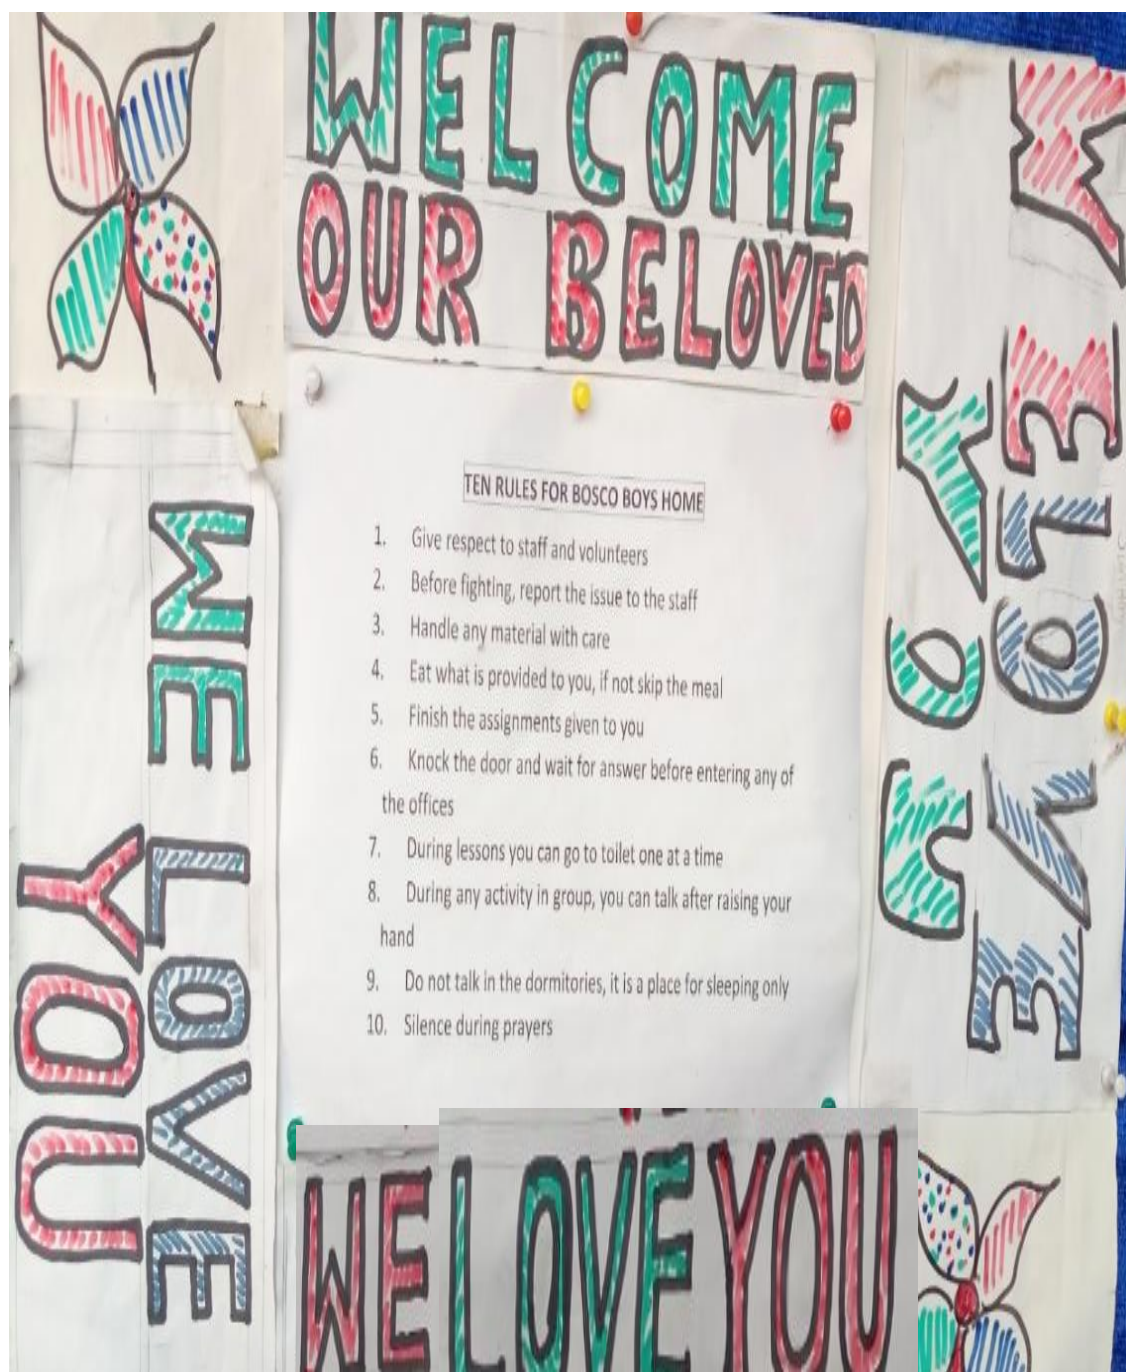 WELCOME
OUR BELOVED
TEN RULES FOR BOSCO BOYS HOME
1. Give respect to staff and volunteers
2. Before fighting, report the issue to the staff
3. Handle any material with care
4. Eat what is provided to you, if not skip the meal
5. Finish the assignments given to you
6. Knock the door and wait for answer before entering any of
the offices
7. During lessons you can go to toilet one at a time
8. During any activity in group, you can talk after raising your
hand
9. Do not talk in the dormitories, it is a place for sleeping only
10. Silence during prayers
WE LOVE
YOU
WE LOVE
YOU
WE LOVE YOU